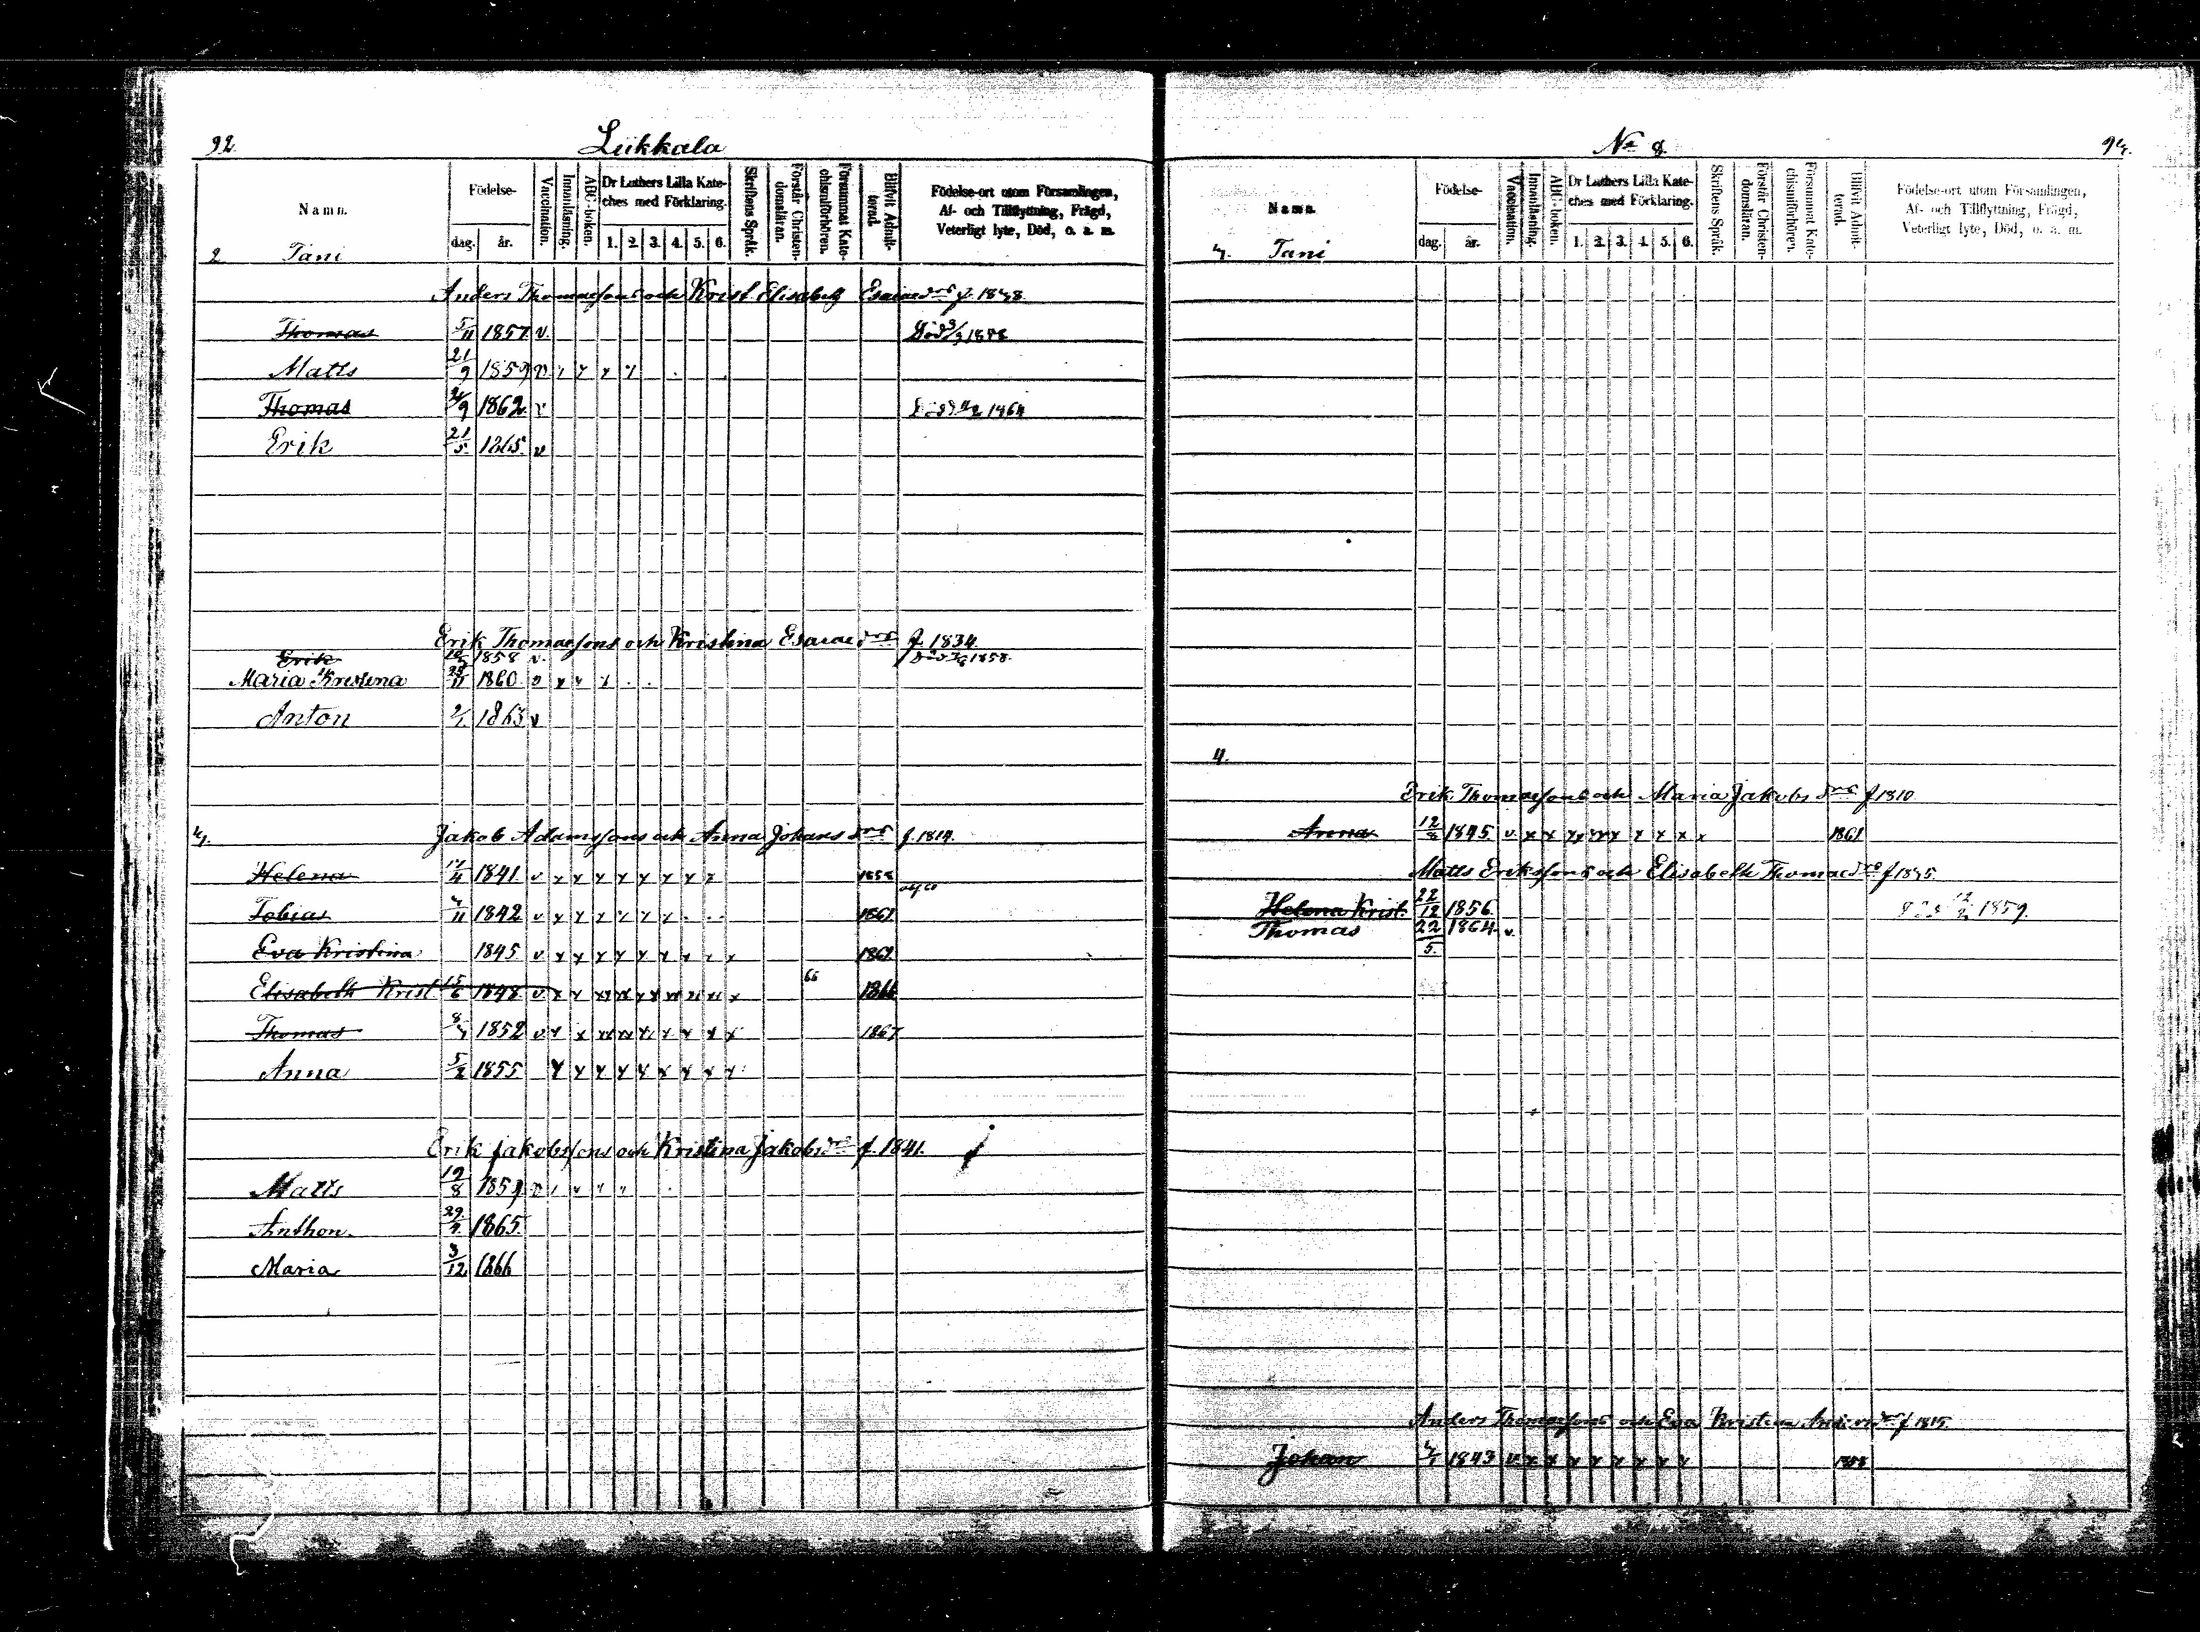 92.
Liikkala
Namn.
Födelse-
dag. år.
Vaccination.
Innanläsning.
ABC-boken.
Dr Luthers Lilla Kate-
ches med Förklaring.
1. 2. 3. 4. 5. 6.
Skriftens Språk.
Förstår Christen-
domsläran.
Försummat Kate-
chismiförhören.
Blifvit Admit-
terad.
Födelse-ort utom Församlingen,
Af- och Tillflyttning, Frägd,
Veterligt lyte, Död, o. a. m.
2 Tani
Anders Thomassons och Krist. Elisabeth Esaiaedrs f.
Thomas 5/11 1857 v.
Matts 21/9 1859 v. x x x x
Thomas 1862 v
Erik 21/5 1865 v
Erik Thomaesons och Kristina Esaiaedrs f. 1834
Erik 1858 v.
Maria Kristina 1860 v x x x
Anton 2/1 1863 v
Jakob Adamssons och Anna Johansdrs f. 1814.
Helena 1841 v x x x x x x x x 1858
Tobias 1842 v x x x x x x 1861
Eva Kristina 1845 v x x x x x x x x
Elisabeth Krist 15/6 1848 v x x xx xx x x xx xx xx x 66 1866
Thomas 1852 v x x xx xx x x x x x 1867
Anna 5/2 1855 x x x x x x x x x
Erik Jakobssons och Kristina Jakobsdrs f. 1841.
Matts 19/8 1859 v
Anthon. 1865.
Maria 3/12 1866
No 8
Namn.
Födelse-
dag. år.
Vaccination.
Innanläsning.
ABC-boken.
Dr Luthers Lilla Kate-
ches med Förklaring.
1. 2. 3. 4. 5. 6.
Skriftens Språk.
Förstår Christen-
domsläran.
Försummat Kate-
chismiförhören.
Blifvit Admit-
terad.
Födelse-ort utom Församlingen,
Af- och Tillflyttning, Frägd,
Veterligt lyte, Död, o. a. m.
Tani
4.
Erik Thomaesons och Maria Jakobsdrs f 1810
Anna 12/8 1845 v. x x xx xx x x x x x 1861
Matts Eriksons och Elisabeth Thomaedrs f
Helena Krist. 22/12 1856 1859.
Thomas 22/5. 1864 v.
Anders Thomaesons och Eva Kristina Andersdrs f 1815.
Johan 1843 v x x x x x x x x 1858